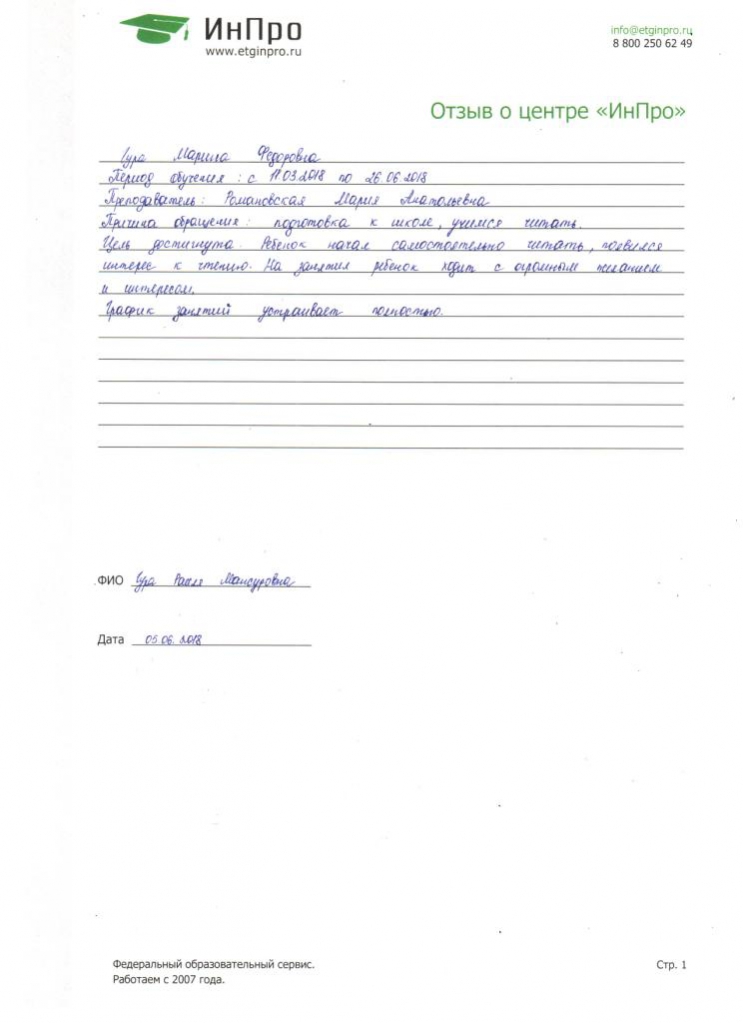 ИнПро
www.etginpro.ru
info@etginpro.ru
8 800 250 62 49
Отзыв о центре «ИнПро»
Гура Марина Федоровна
Период обучения: с 11.03.2018 по 26.06.2018
Преподаватель: Романовская Мария Анатольевна
Причина обращения: подготовка к школе, учимся читать.
Цель достигнута. Ребенок начал самостоятельно читать, появился
интерес к чтению. На занятия ребенок ходит с огромным желанием
и интересом.
График занятий устраивает полностью.
ФИО Гура Раиля Мансуровна
Дата 05.06.2018
Федеральный образовательный сервис.
Работаем с 2007 года.
Стр. 1